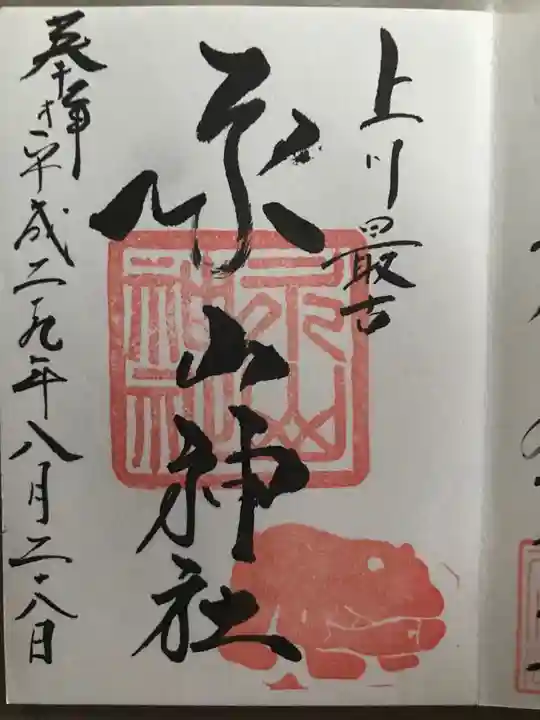 上川最古
永山神社
奉拝 平成二九年八月二八日
永山神社